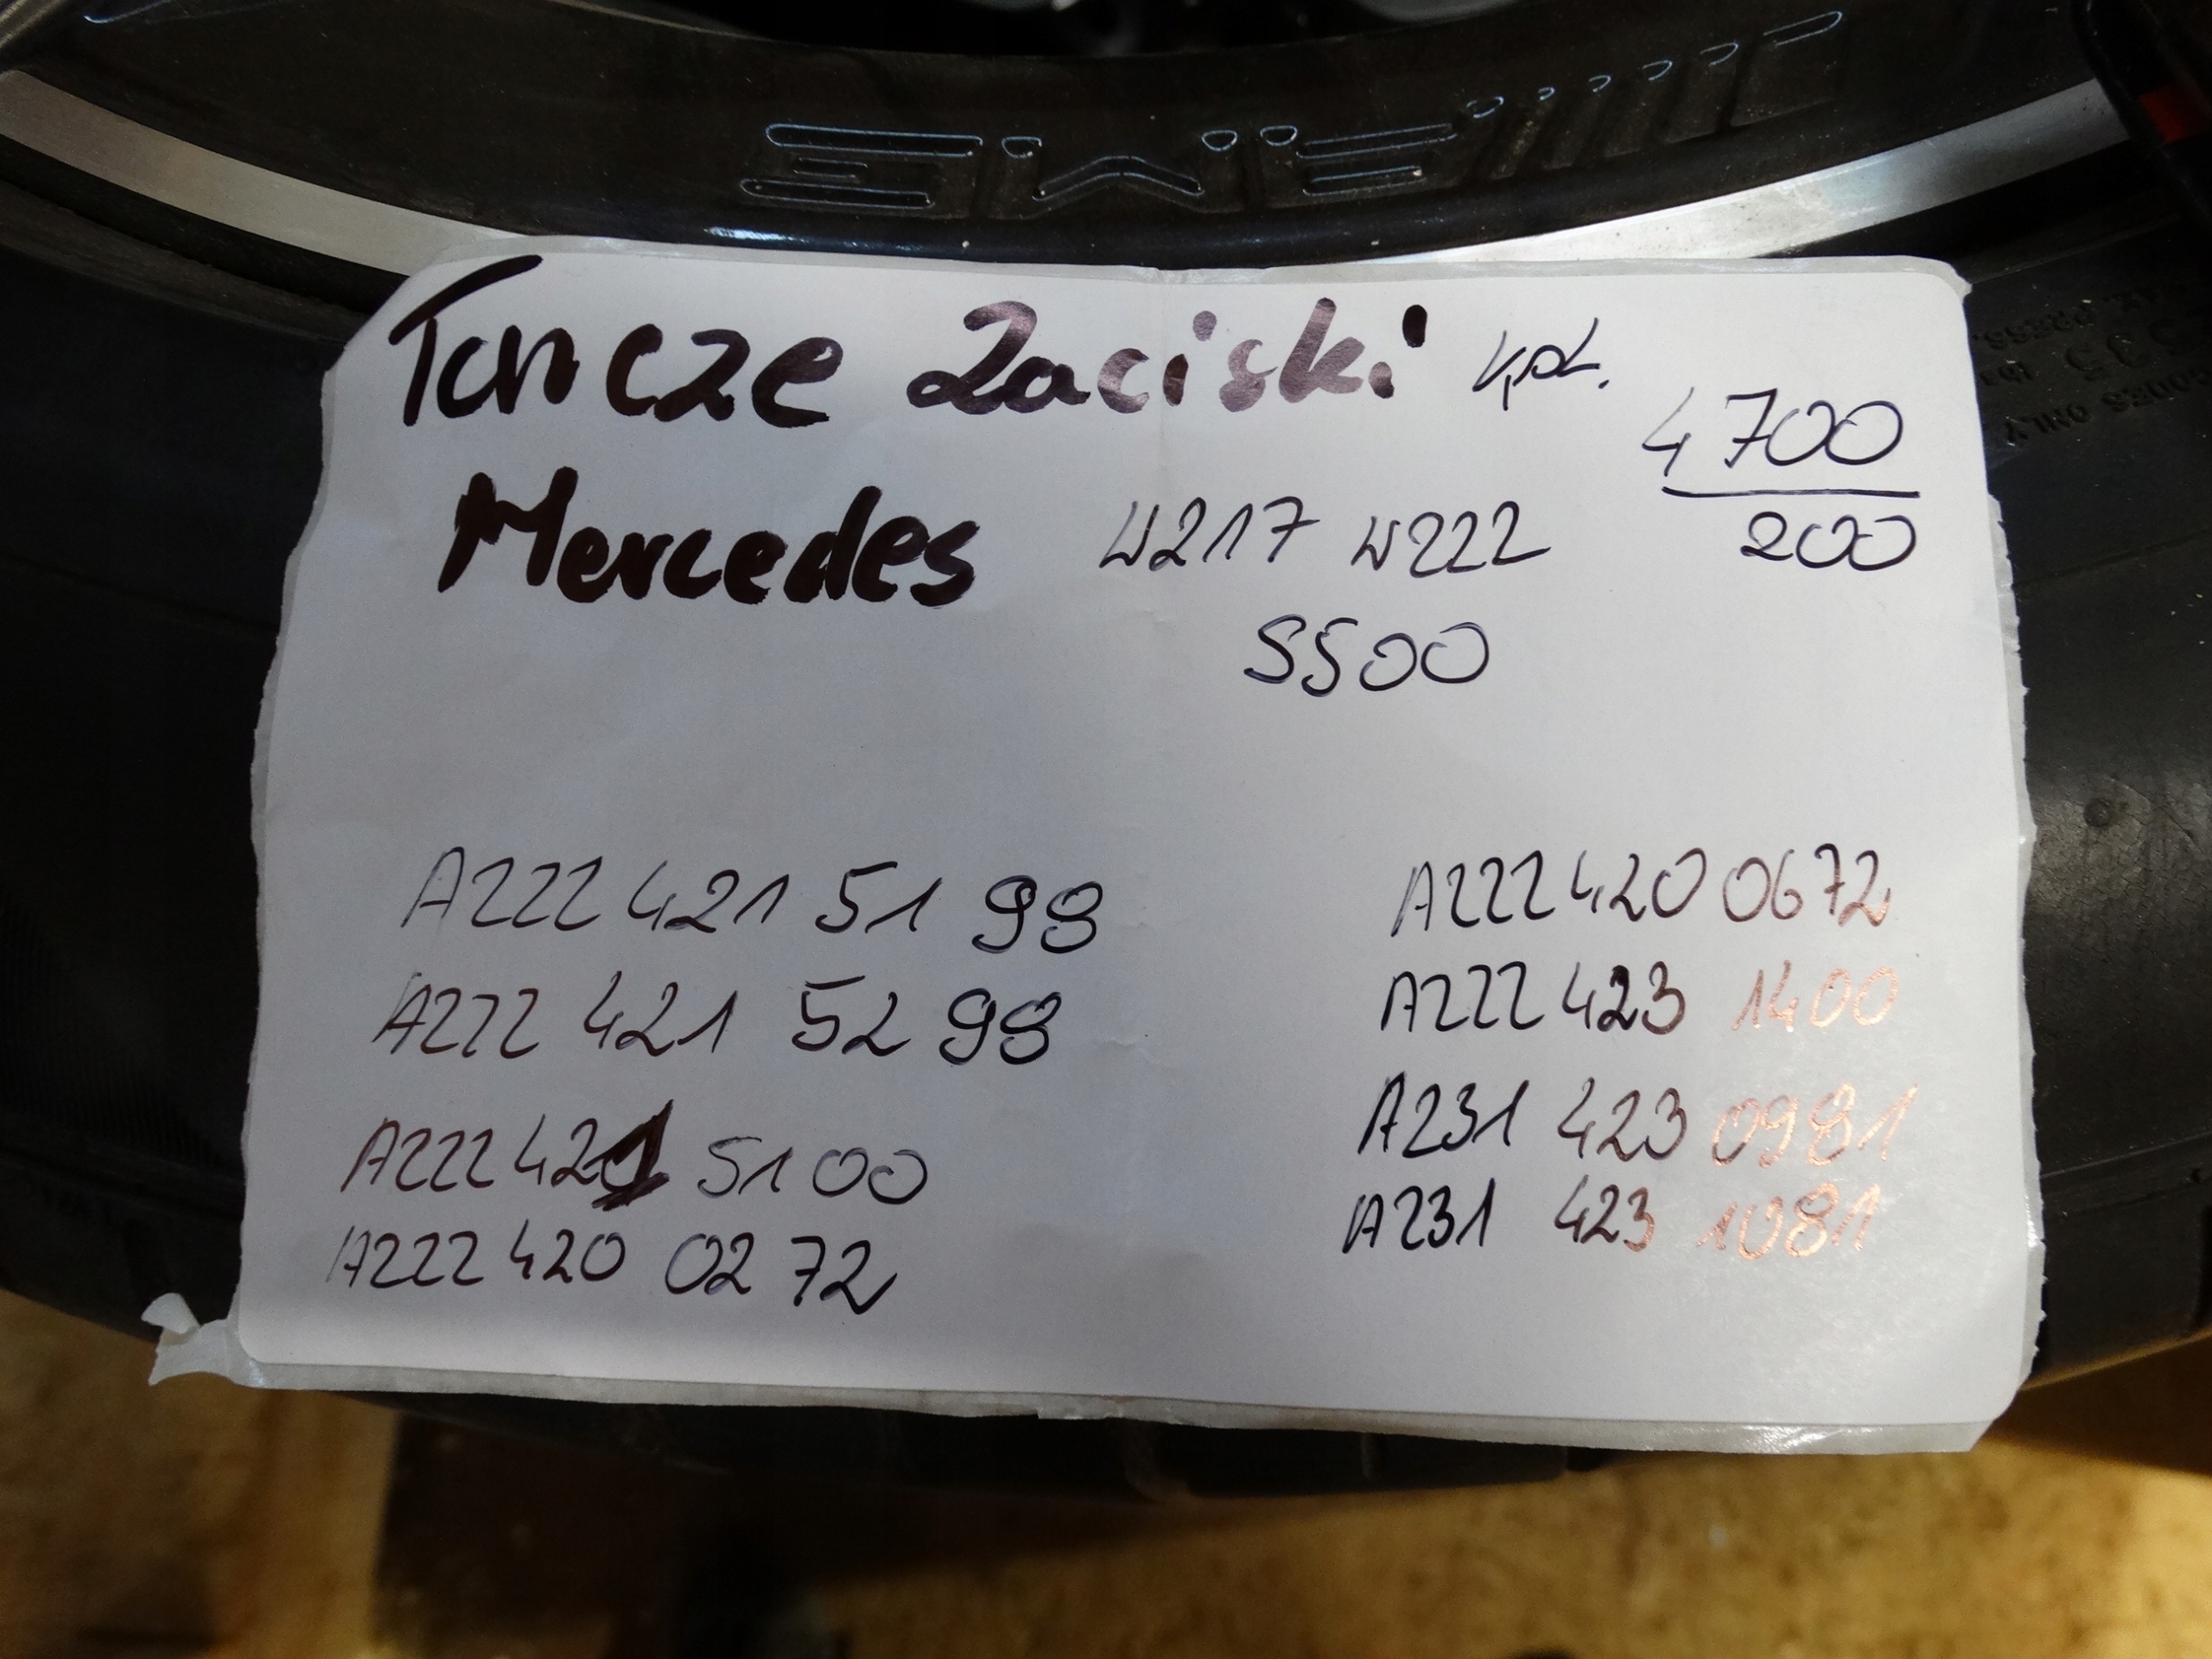 Tarcze Zaciski kpl.
4700
200
Mercedes W217 W222
S500
A222 421 51 98
A222 421 52 98
A222 421 51 00
A222 420 02 72
A222 420 0672
A222 423 1400
A231 423 0981
A231 423 1081